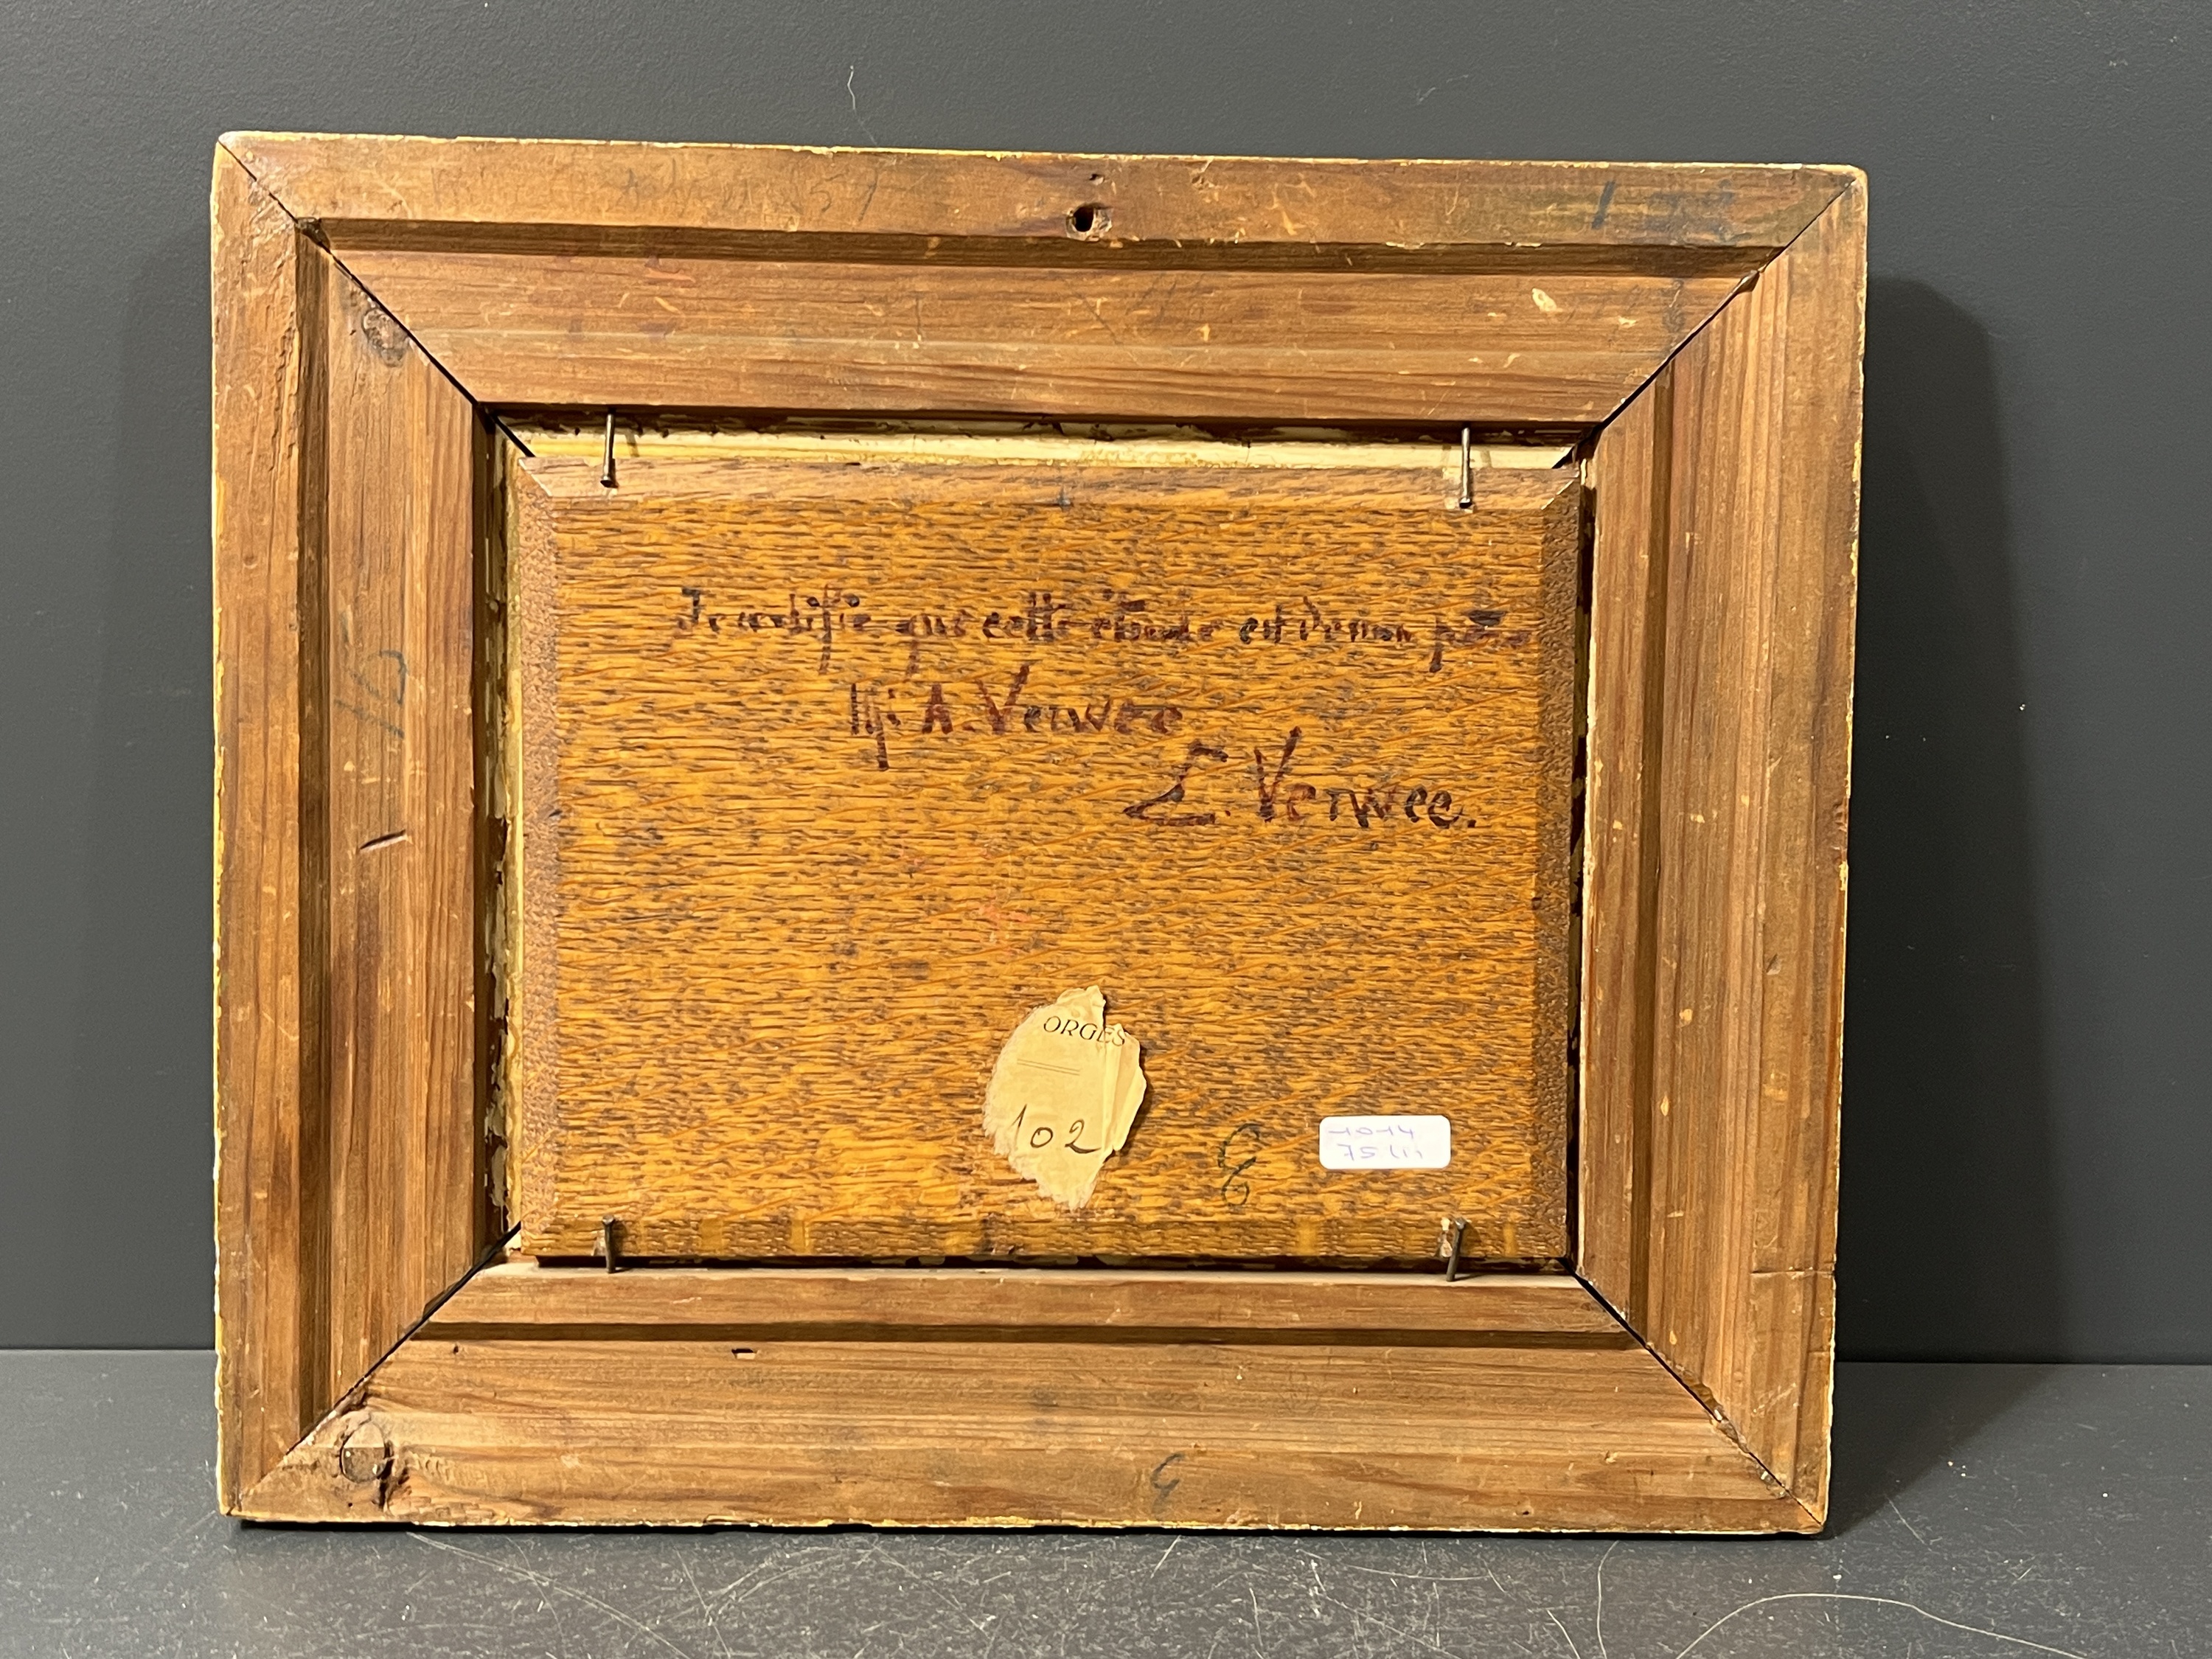 Je certifie que cette étude est de mon père
Mr A. Verwee
L. Verwee.
ORGES
102
1014
15